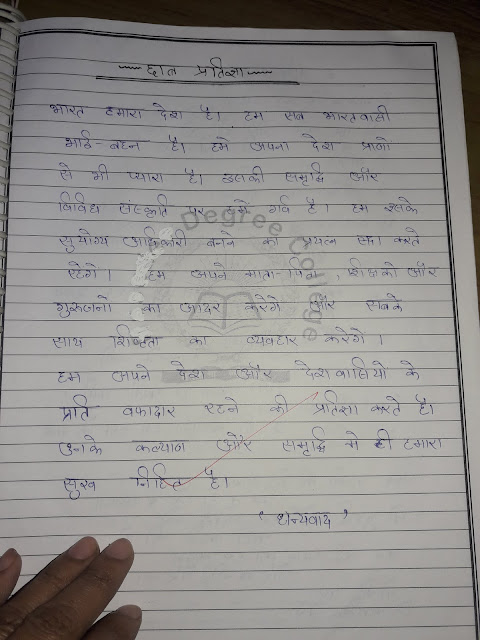 छात्र प्रतिज्ञा
भारत हमारा देश है। हम सब भारतवासी
भाई-बहन है। हमे अपना देश प्राणो
से भी प्यारा है। इसकी समृद्धि और
विविध संस्कृति पर हमे गर्व है। हम इसके
सुयोग्य अधिकारी बनने का प्रयत्न सदा करते
रहेंगे। हम अपने माता-पिता, शिक्षको और
गुरुजनो का आदर करेंगे और सबके
साथ शिष्टता का व्यवहार करेंगे।
हम अपने देश और देशवासियो के
प्रति वफादार रहने की प्रतिज्ञा करते है।
उनके कल्याण और समृद्धि मे ही हमारा
सुख निहित है।
' धन्यवाद '
Degree College